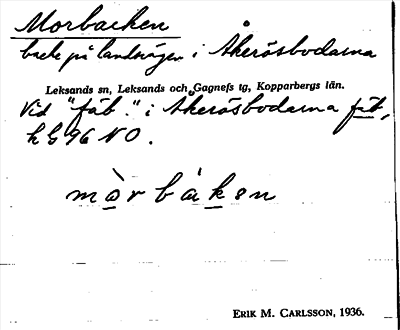 Morbacken
backe på landsvägen i Åkerösbodarna
Leksands sn, Leksands och Gagnefs tg, Kopparbergs län.
Vid "fäb." i Åkerösbodarna fäb,
k G 96 NO.
mòrbáken
ERIK M. CARLSSON, 1936.